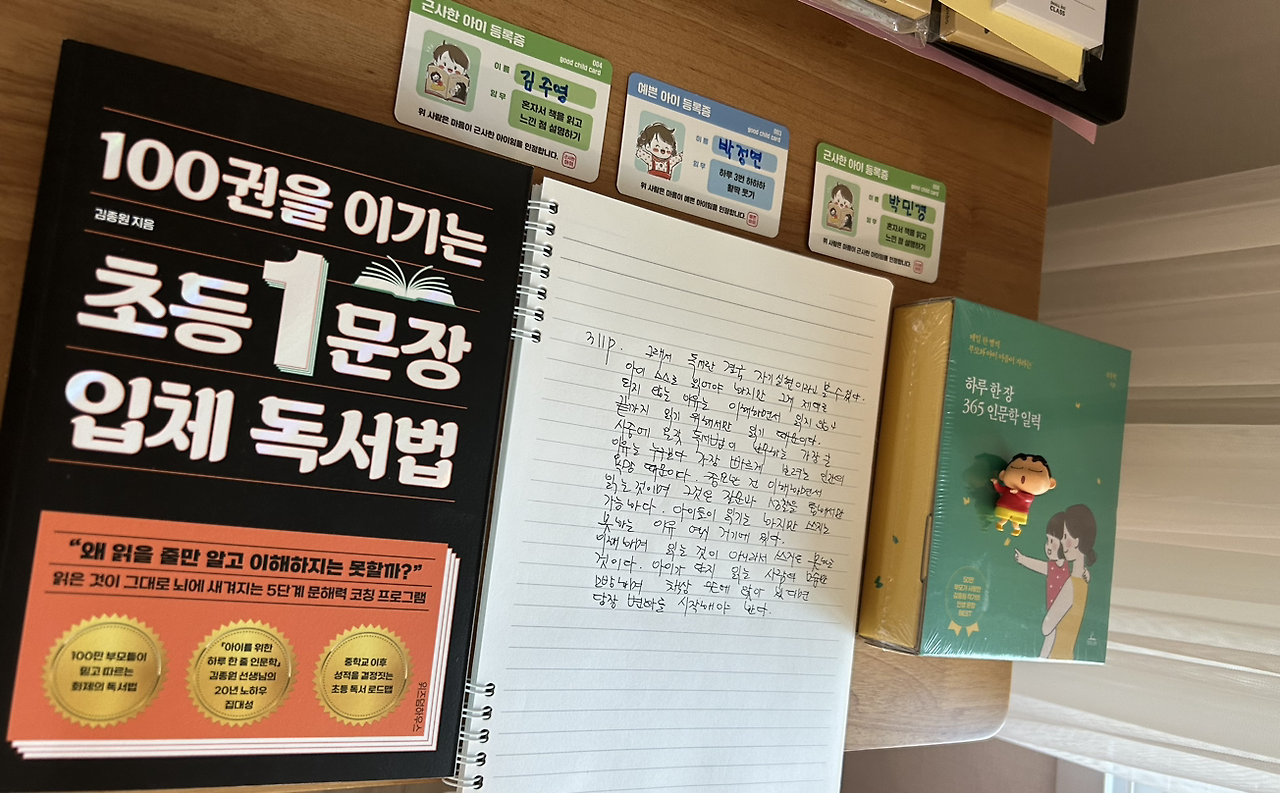 100권을 이기는
김종원 지음
초등 1 문장
입체 독서법
“왜 읽을 줄만 알고 이해하지는 못할까?”
읽은 것이 그대로 뇌에 새겨지는 5단계 문해력 코칭 프로그램
100만 부모들이
믿고 따르는
화제의 독서법
『아이를 위한
하루 한 줄 인문학』
김종원 선생님의
20년 노하우
집대성
중학교 이후
성적을 결정짓는
초등 독서 로드맵
위즈덤하우스
근사한 아이 등록증
004
good child card
이름 김주영
임무 혼자서 책을 읽고
느낀 점 설명하기
위 사람은 마음이 근사한 아이임을 인정합니다.
예쁜 아이 등록증
003
good child card
이름 박정연
임무 하루 3번 하하하
활짝 웃기
위 사람은 마음이 예쁜 아이임을 인정합니다.
근사한 아이 등록증
good child card
이름 박민경
임무 혼자서 책을 읽고
느낀 점 설명하기
위 사람은 마음이 근사한 아이임을 인정합니다.
CLASS
311p. 그래서 독서란 결국 자기실현이라고 볼 수 있다.
아이 스스로 읽어야 하지만 그게 제대로
되지 않는 이유는 이해하면서 읽지 않고
끝까지 읽기 위해서만 읽기 때문이다.
시중에 온갖 독서법이 난무하는 가장 큰
이유는 누구보다 가장 빠르게 읽으려는 인간의
욕망 때문이다. 중요한 건 이해하면서
읽는 것이며 그것은 질문과 사색을 통해서만
가능하다. 아이들이 읽기는 하지만 쓰지는
못하는 이유 역시 거기에 있다.
이해하며 읽는 것이 아니라서 쓰지도 못하는
것이다. 아이가 단지 읽는 사람의 모습만
모방하며 책상 앞에 앉아 있다면
당장 변화를 시작해야 한다.
매일 한 뼘씩
부모와 아이 마음이 자라는
하루 한 장
365 인문학 일력